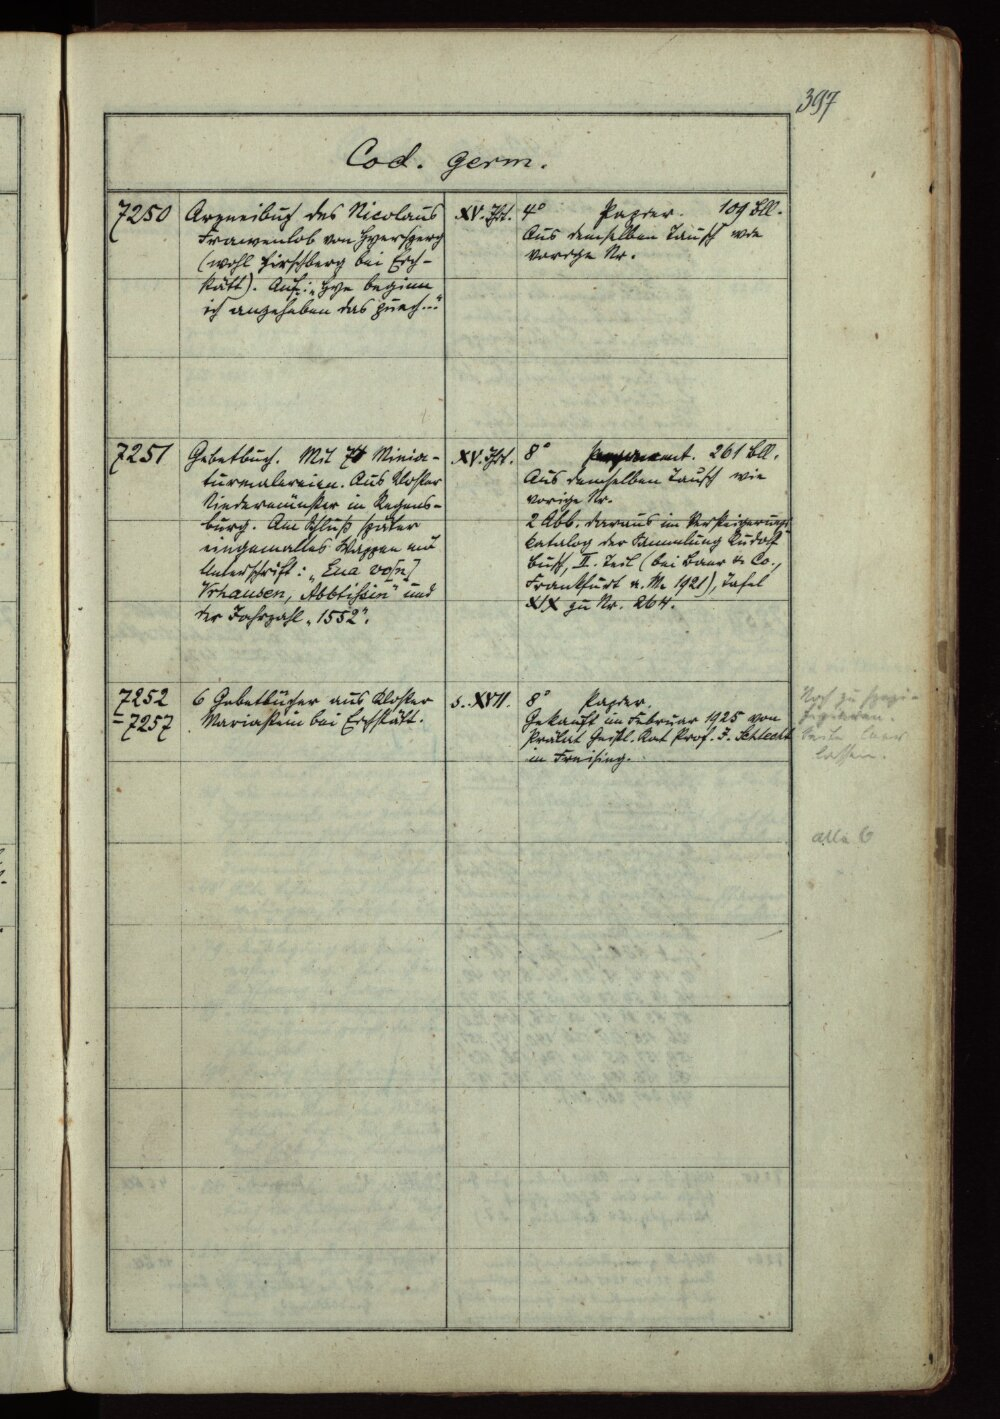 397
Cod. germ.
7250
Arzneibuch des Nicolaus
Frawenlob von Hyersperg
(wohl Hirschberg bei Eich-
stätt). Anf.: „Hye beginn
ich anzeheben das puech..."
XV. Jht.
4° Papier. 109 Bll.
Aus demselben Tausch wie
vorige Nr.
7251
Gebetbuch. Mit 74 Minia-
turmalereien. Aus Kloster
Niedermünster in Regens-
burg. Am Schluß später
eingemaltes Wappen mit
Unterschrift: „Eua vo[n]
Vrhausen, Abbtissin" und
der Jahrzahl „1552".
XV. Jht.
8° Pergament. 261 Bll.
Aus demselben Tausch wie
vorige Nr.
2 Abb. daraus im Versteigerungs
katalog der Sammlung Rudolf
Busch, II. Teil (bei Baer & Co.,
Frankfurt a. M. 1921), Tafel
XIX zu Nr. 264.
7252
– 7257
6 Gebetbücher aus Kloster
Mariastein bei Eichstätt.
s. XVII.
8° Papier.
Gekauft im Februar 1925 von
Prälat Geistl. Rat Prof. J. Schlecht
in Freising.
Noch zu spezi-
fizieren.
Seite leer
lassen.
alle 6